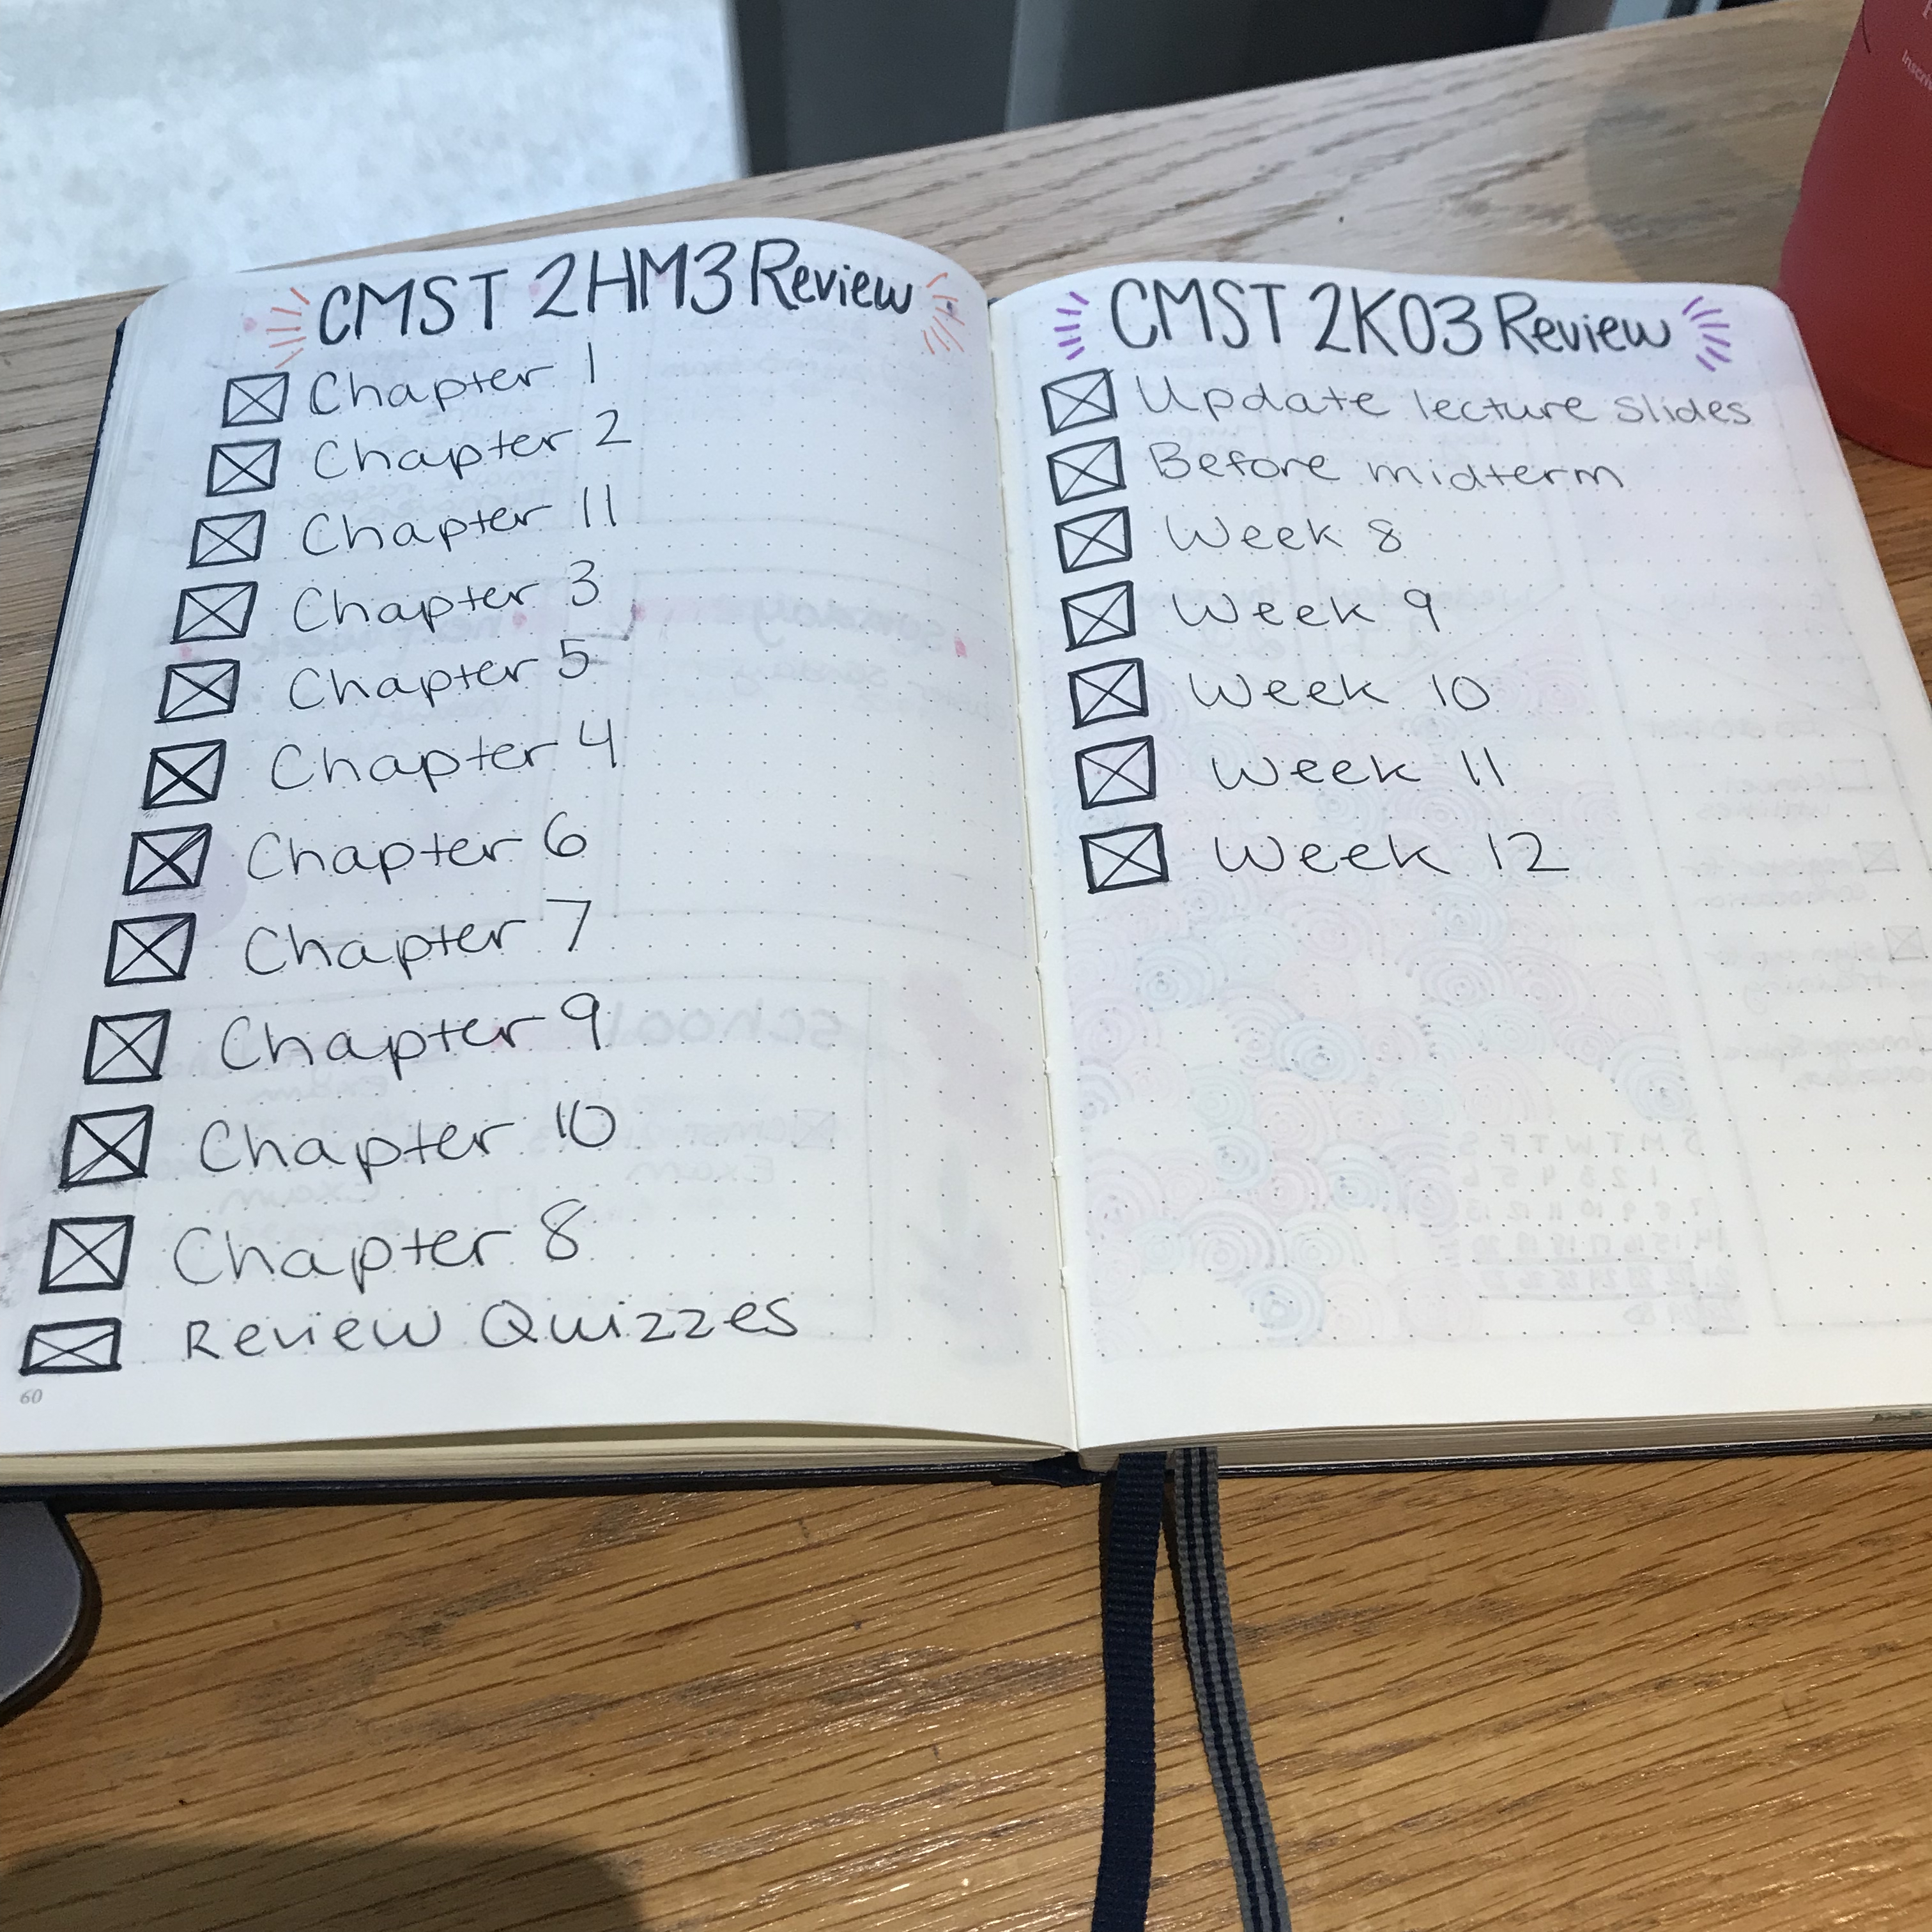 CMST 2HM3 Review
Chapter 1
Chapter 2
Chapter 11
Chapter 3
Chapter 5
Chapter 4
Chapter 6
Chapter 7
Chapter 9
Chapter 10
Chapter 8
Review Quizzes
60
CMST 2K03 Review
Update lecture slides
Before midterm
Week 8
Week 9
Week 10
Week 11
Week 12